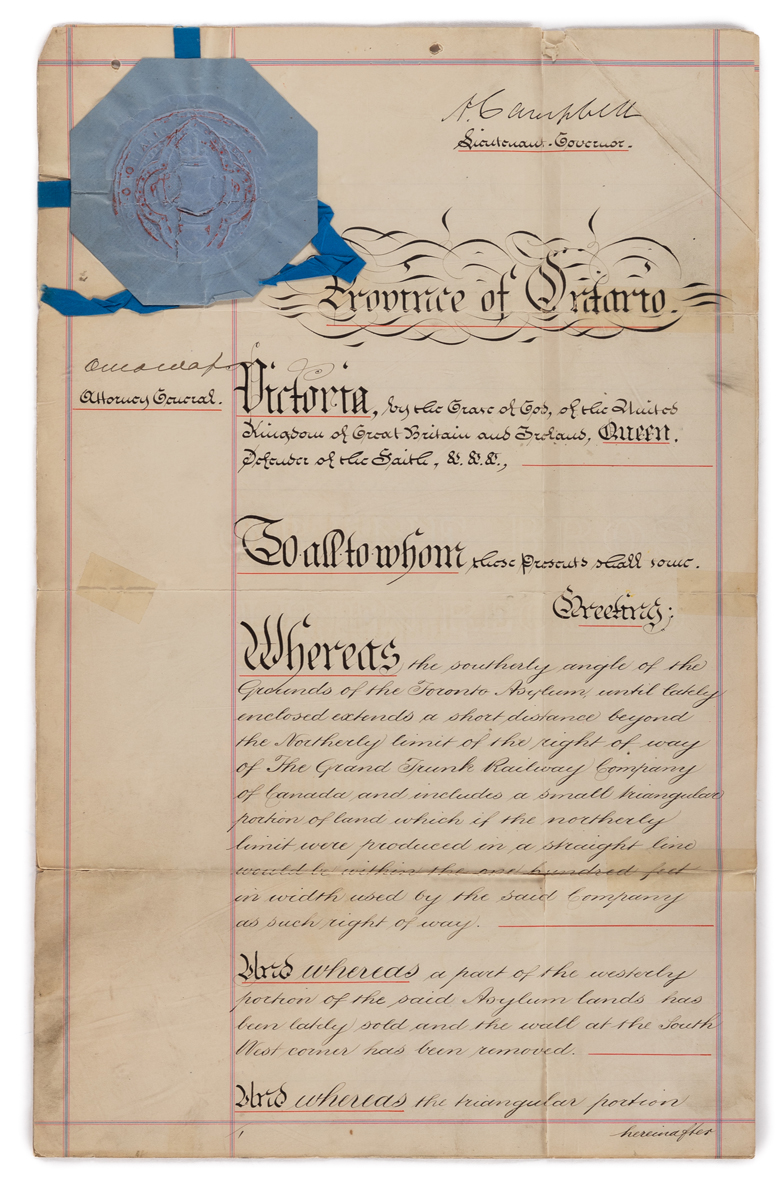 A. Campbell
Lieutenant-Governor.
Province of Ontario.
O Mowat
Attorney General.
Victoria, by the Grace of God, of the United
Kingdom of Great Britain and Ireland, Queen,
Defender of the Faith, &. &. &.,
To all to whom these Presents shall come.
Greeting;
Whereas the southerly angle of the
Grounds of the Toronto Asylum, until lately
enclosed extends a short distance beyond
the Northerly limit of the right of way
of The Grand Trunk Railway Company
of Canada and includes a small triangular
portion of land which if the northerly
limit were produced in a straight line
would be within the one hundred feet
in width used by the said Company
as such right of way.
And whereas a part of the westerly
portion of the said Asylum lands has
been lately sold and the wall at the South
West corner has been removed.
And whereas the triangular portion
hereinafter